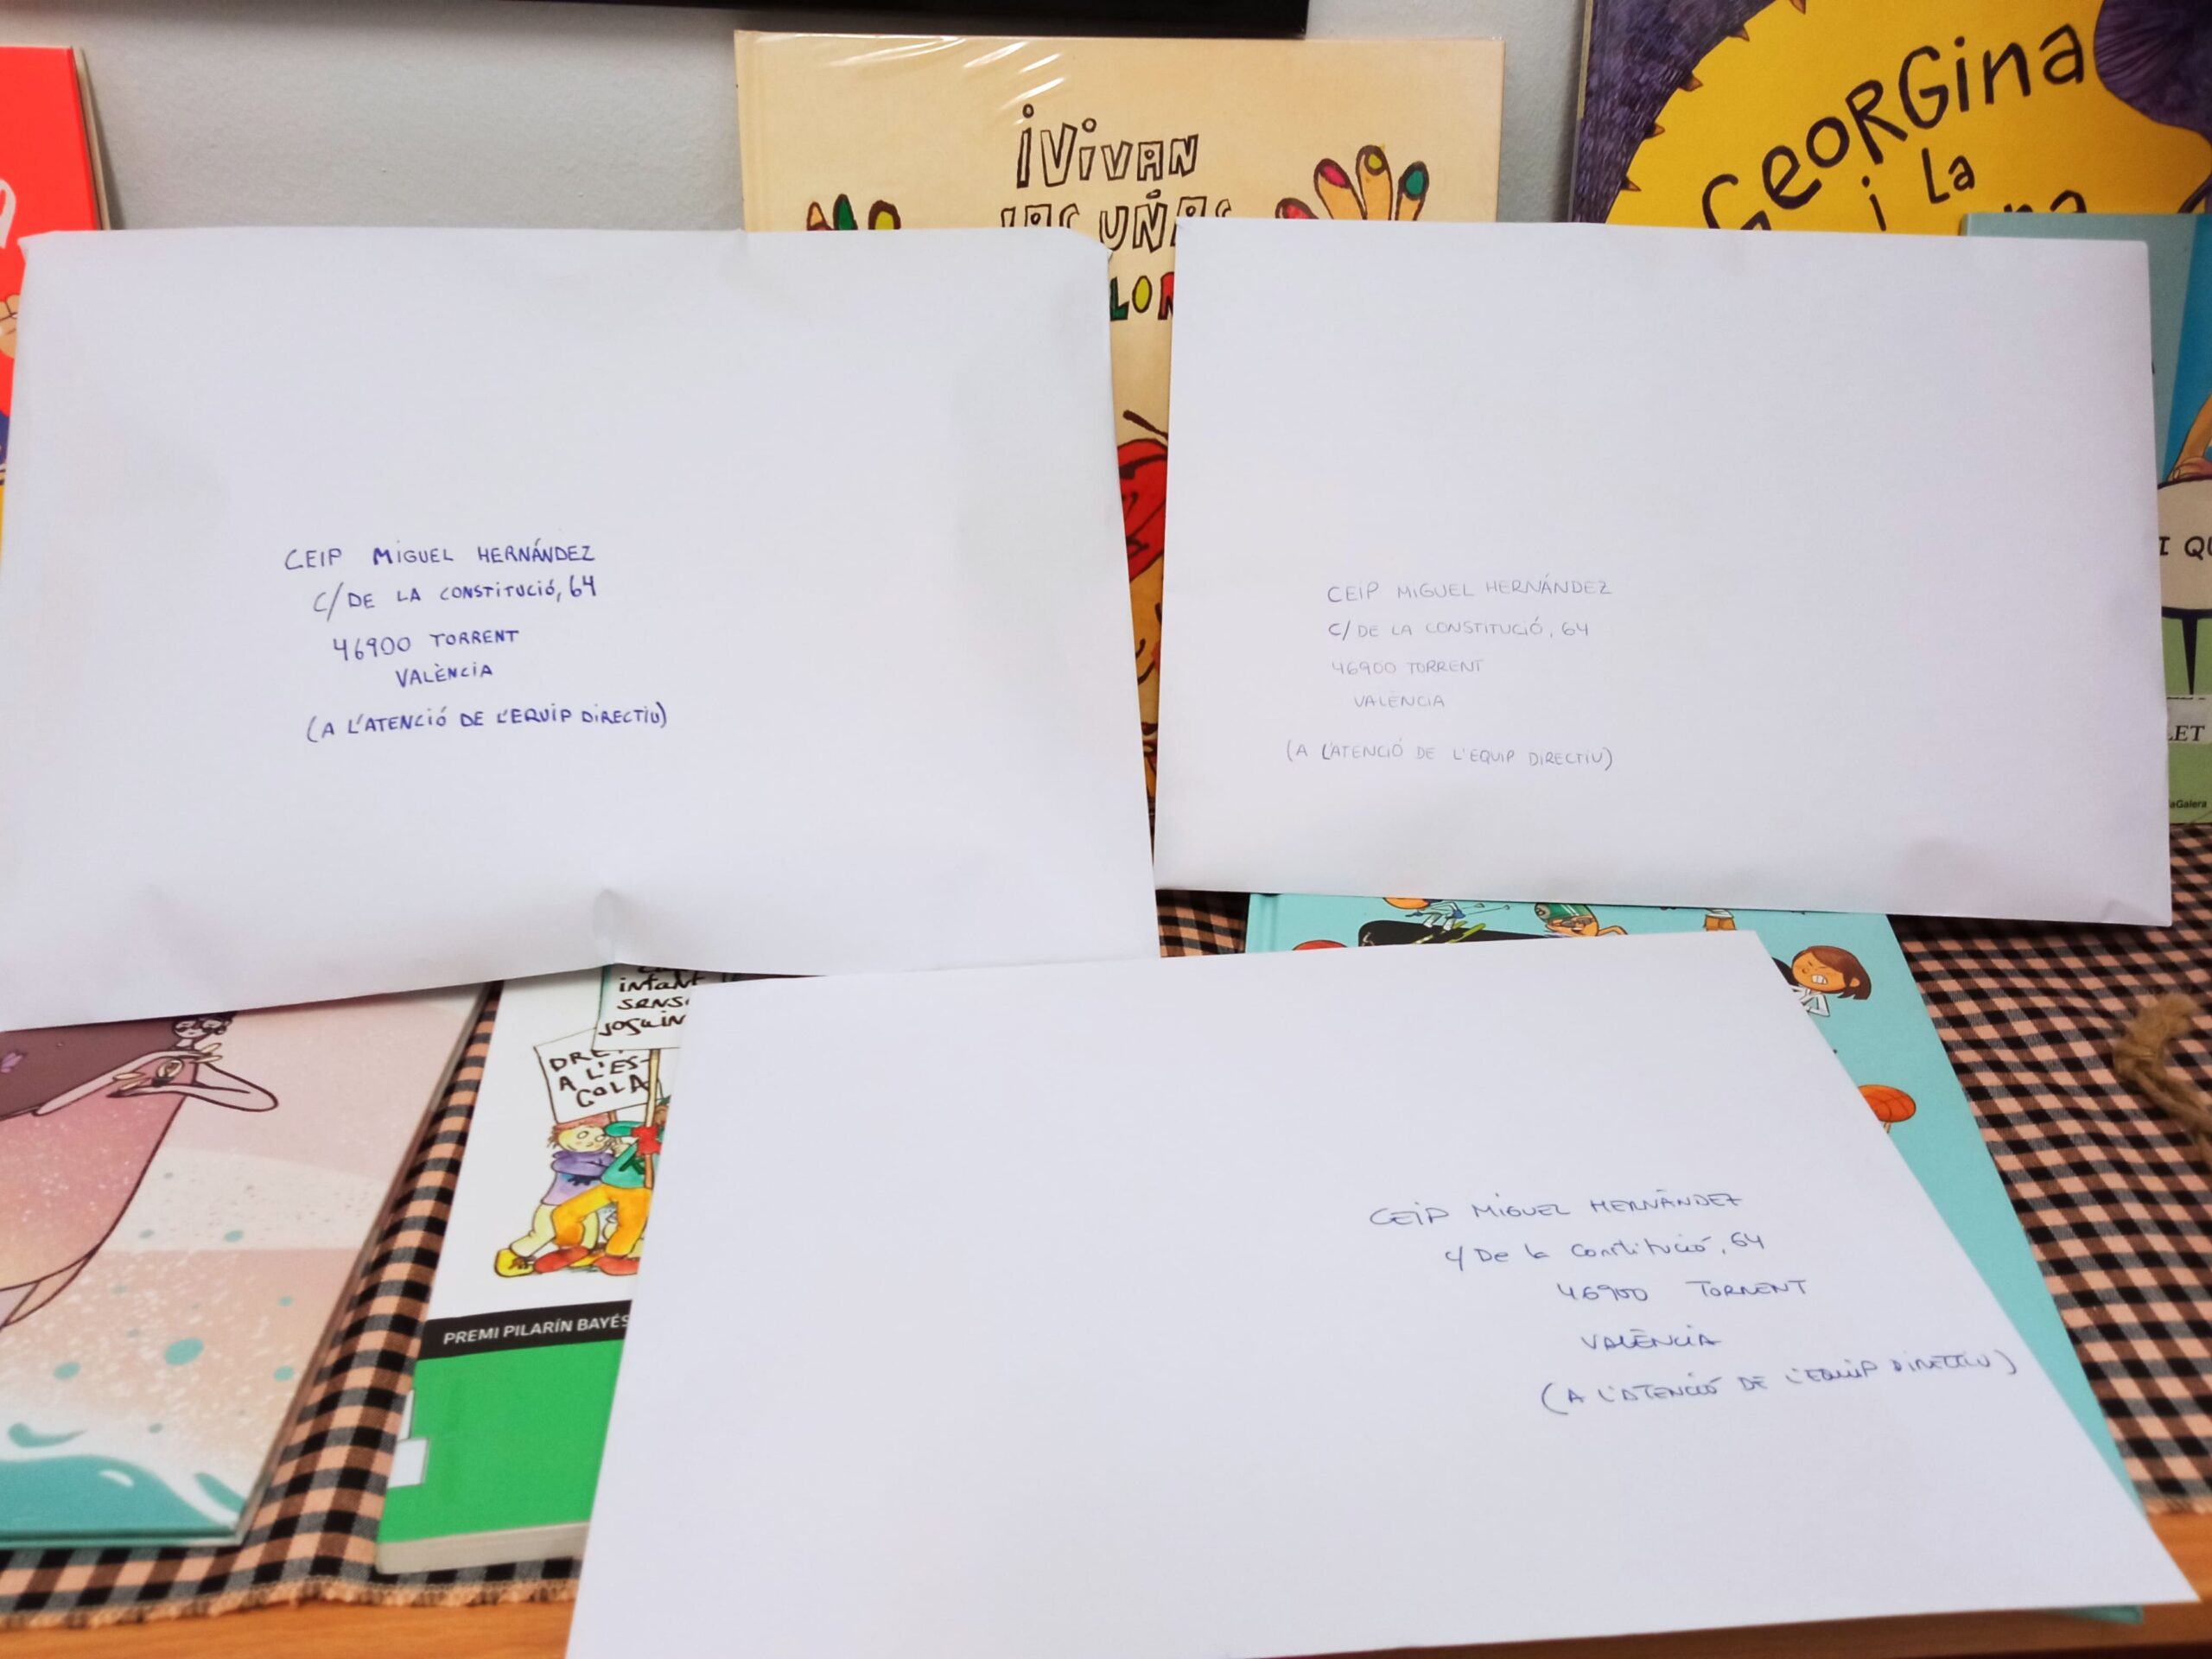 ¡ViVAN
LAS UÑAS
LOR
GeoRGina
i La
na
CEIP MIGUEL HERNÁNDEZ
C/ DE LA CONSTITUCIÓ, 64
46900 TORRENT
VALÈNCIA
(A L'ATENCIÓ DE L'EQUIP DIRECTIU)
CEIP MIGUEL HERNÁNDEZ
C/ DE LA CONSTITUCIÓ, 64
46900 TORRENT
VALÈNCIA
(A L'ATENCIÓ DE L'EQUIP DIRECTIU)
I QU
LET
aGalera
infant
sensi
josuin
DRE
A L'ES-
COLA
PREMI PILARÍN BAYÉS
CEIP MIGUEL HERNÀNDEZ
C/ De la Constitució, 64
46900 TORRENT
VALÈNCIA
(A L'ATENCIÓ DE L'EQUIP DIRECTIU)